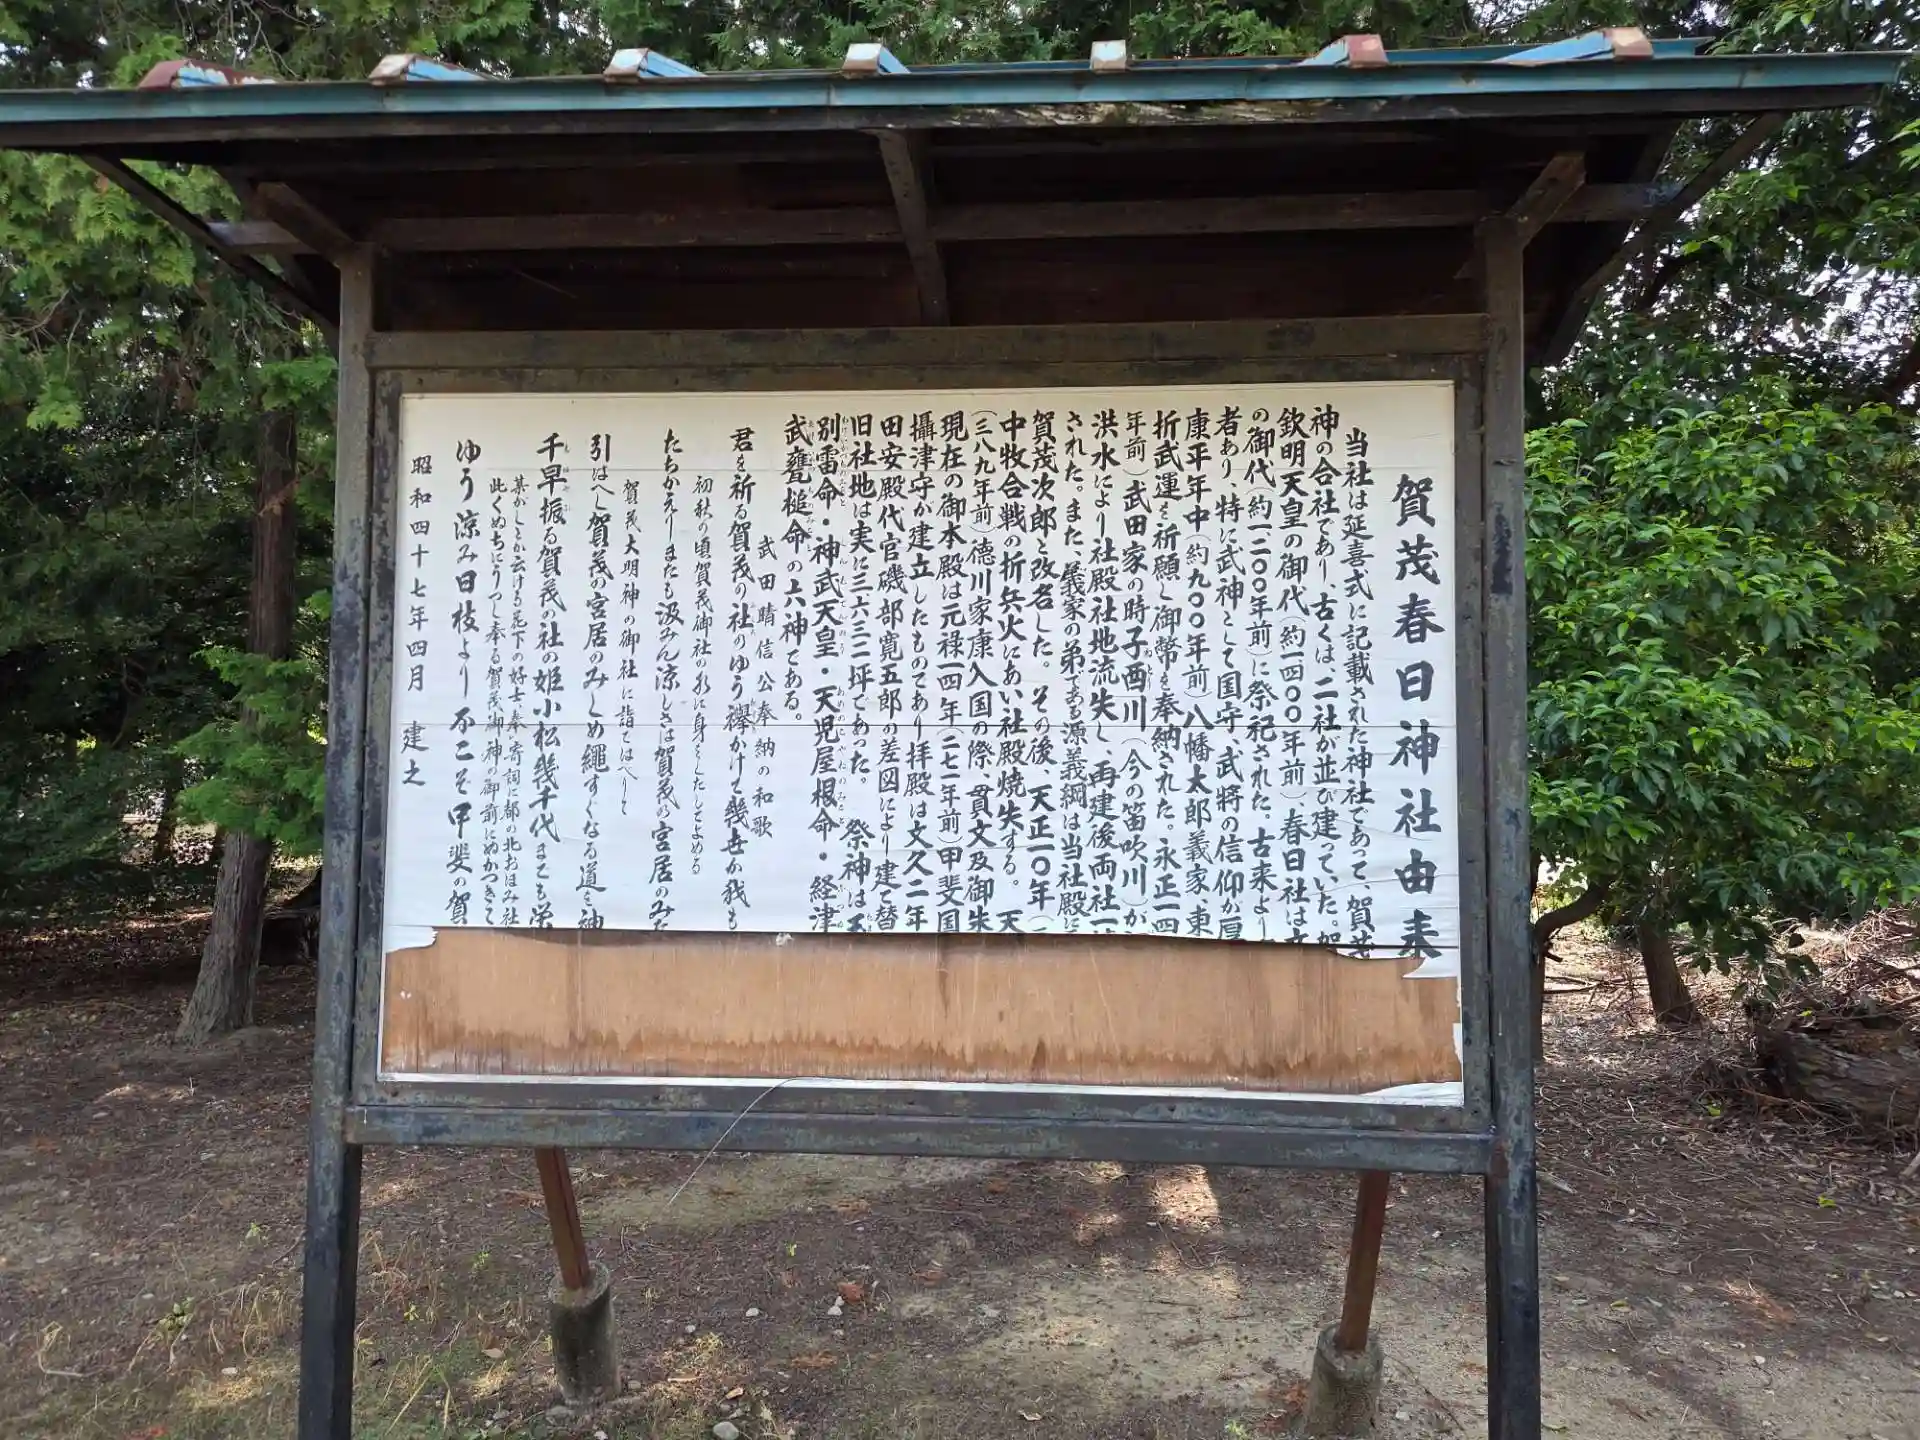 賀茂春日神社由来
当社は延喜式に記載された神社であって、賀茂
神の合社であり、古くは、二社が並び建っていた。賀
欽明天皇の御代（約一四〇〇年前）、春日社は文
の御代（約一二〇〇年前）に祭祀された。古来より
者あり、特に武神として国守、武将の信仰が厚
康平年中（約九〇〇年前）八幡太郎義家、東
折武運を祈願し御幣を奉納された。永正一四
年前）武田家の時子酉川（今の笛吹川）が
洪水により社殿社地流失し、再建後両社一
された。また、義家の弟である源義綱は当社殿に
賀茂次郎と改名した。その後、天正一〇年（
中牧合戦の折兵火にあい社殿焼失する。天
（三八九年前）徳川家康入国の際、貫文及御朱
現在の御本殿は元禄一四年（二七一年前）甲斐国
攝津守が建立したものであり拝殿は文久二年
田安殿代官磯部寛五郎の差図により建て替
旧社地は実に三六三二坪であった。　祭神は玉
別雷命・神武天皇・天児屋根命・経津
武甕槌命の六神である。
武田晴信公奉納の和歌
君を祈る賀茂の社のゆう襷かけて幾世か我も
初秋の頃賀茂御社の
に身をしたしてよめる
たちかえりまたも汲みん涼しさは賀茂の宮居のみた
賀茂大明神の御社に詣ではべりて
引はへし賀茂の宮居のみしめ繩すぐなる道を神
千早振る賀茂の社の姫小松幾千代までも栄
某かしとか云けも花下の好士、奉寄詞に都の北おほみ社
此くぬちにうつし奉る賀茂御神の御前にぬかつきて
ゆう涼み日枝より
こそ甲斐の賀
昭和四十七年四月　建之